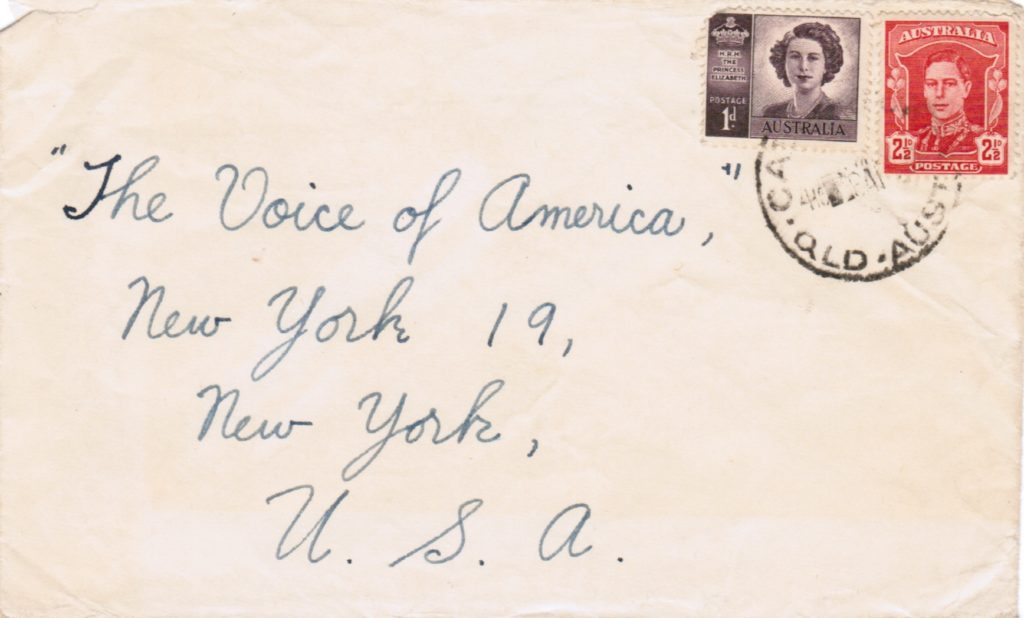 H.R.H.
THE
PRINCESS
ELIZABETH
POSTAGE
1d.
AUSTRALIA
AUSTRALIA
2½D 2½D
POSTAGE
QLD · AUST
"The Voice of America,"
New York 19,
New York,
U. S. A.